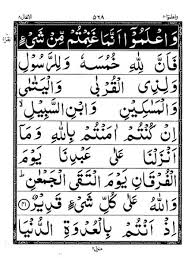 الانفال ٨ ٥٦٨ واعلموا ١٠
وَاعْلَمُوْۤا اَنَّمَا غَنِمْتُمْ مِّنْ شَیْءٍ
فَاَنَّ لِلّٰهِ خُمُسَهٗ وَلِلرَّسُوْلِ
وَلِذِی الْقُرْبٰی وَالْیَتٰمٰی
وَالْمَسٰكِیْنِ وَابْنِ السَّبِیْلِ ۙ
اِنْ كُنْتُمْ اٰمَنْتُمْ بِاللّٰهِ وَمَاۤ
اَنْزَلْنَا عَلٰی عَبْدِنَا یَوْمَ
الْفُرْقَانِ یَوْمَ الْتَقَی الْجَمْعٰنِ ؕ
وَاللّٰهُ عَلٰی كُلِّ شَیْءٍ قَدِیْرٌ ﴿٤١﴾
اِذْ اَنْتُمْ بِالْعُدْوَةِ الدُّنْیَا